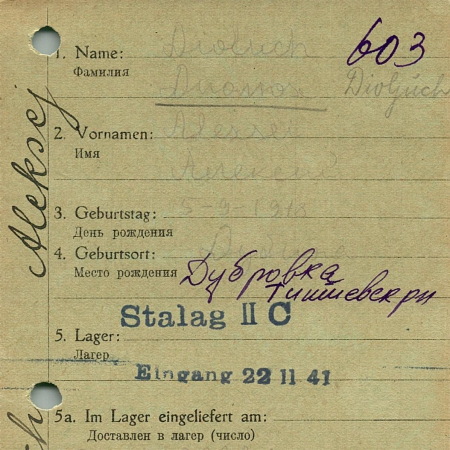 603
1. Name: Dioluch
Фамилия
Dioljuch
2. Vornamen: Alexsei
Имя Алексей
3. Geburtstag: 5-9-1918
День рождения
4. Geburtsort:
Место рождения Дубровка
5. Lager: Stalag II C
Лагер
Eingang 22 11 41
5a. Im Lager eingeliefert am:
Доставлен в лагер (число)
Aleksej